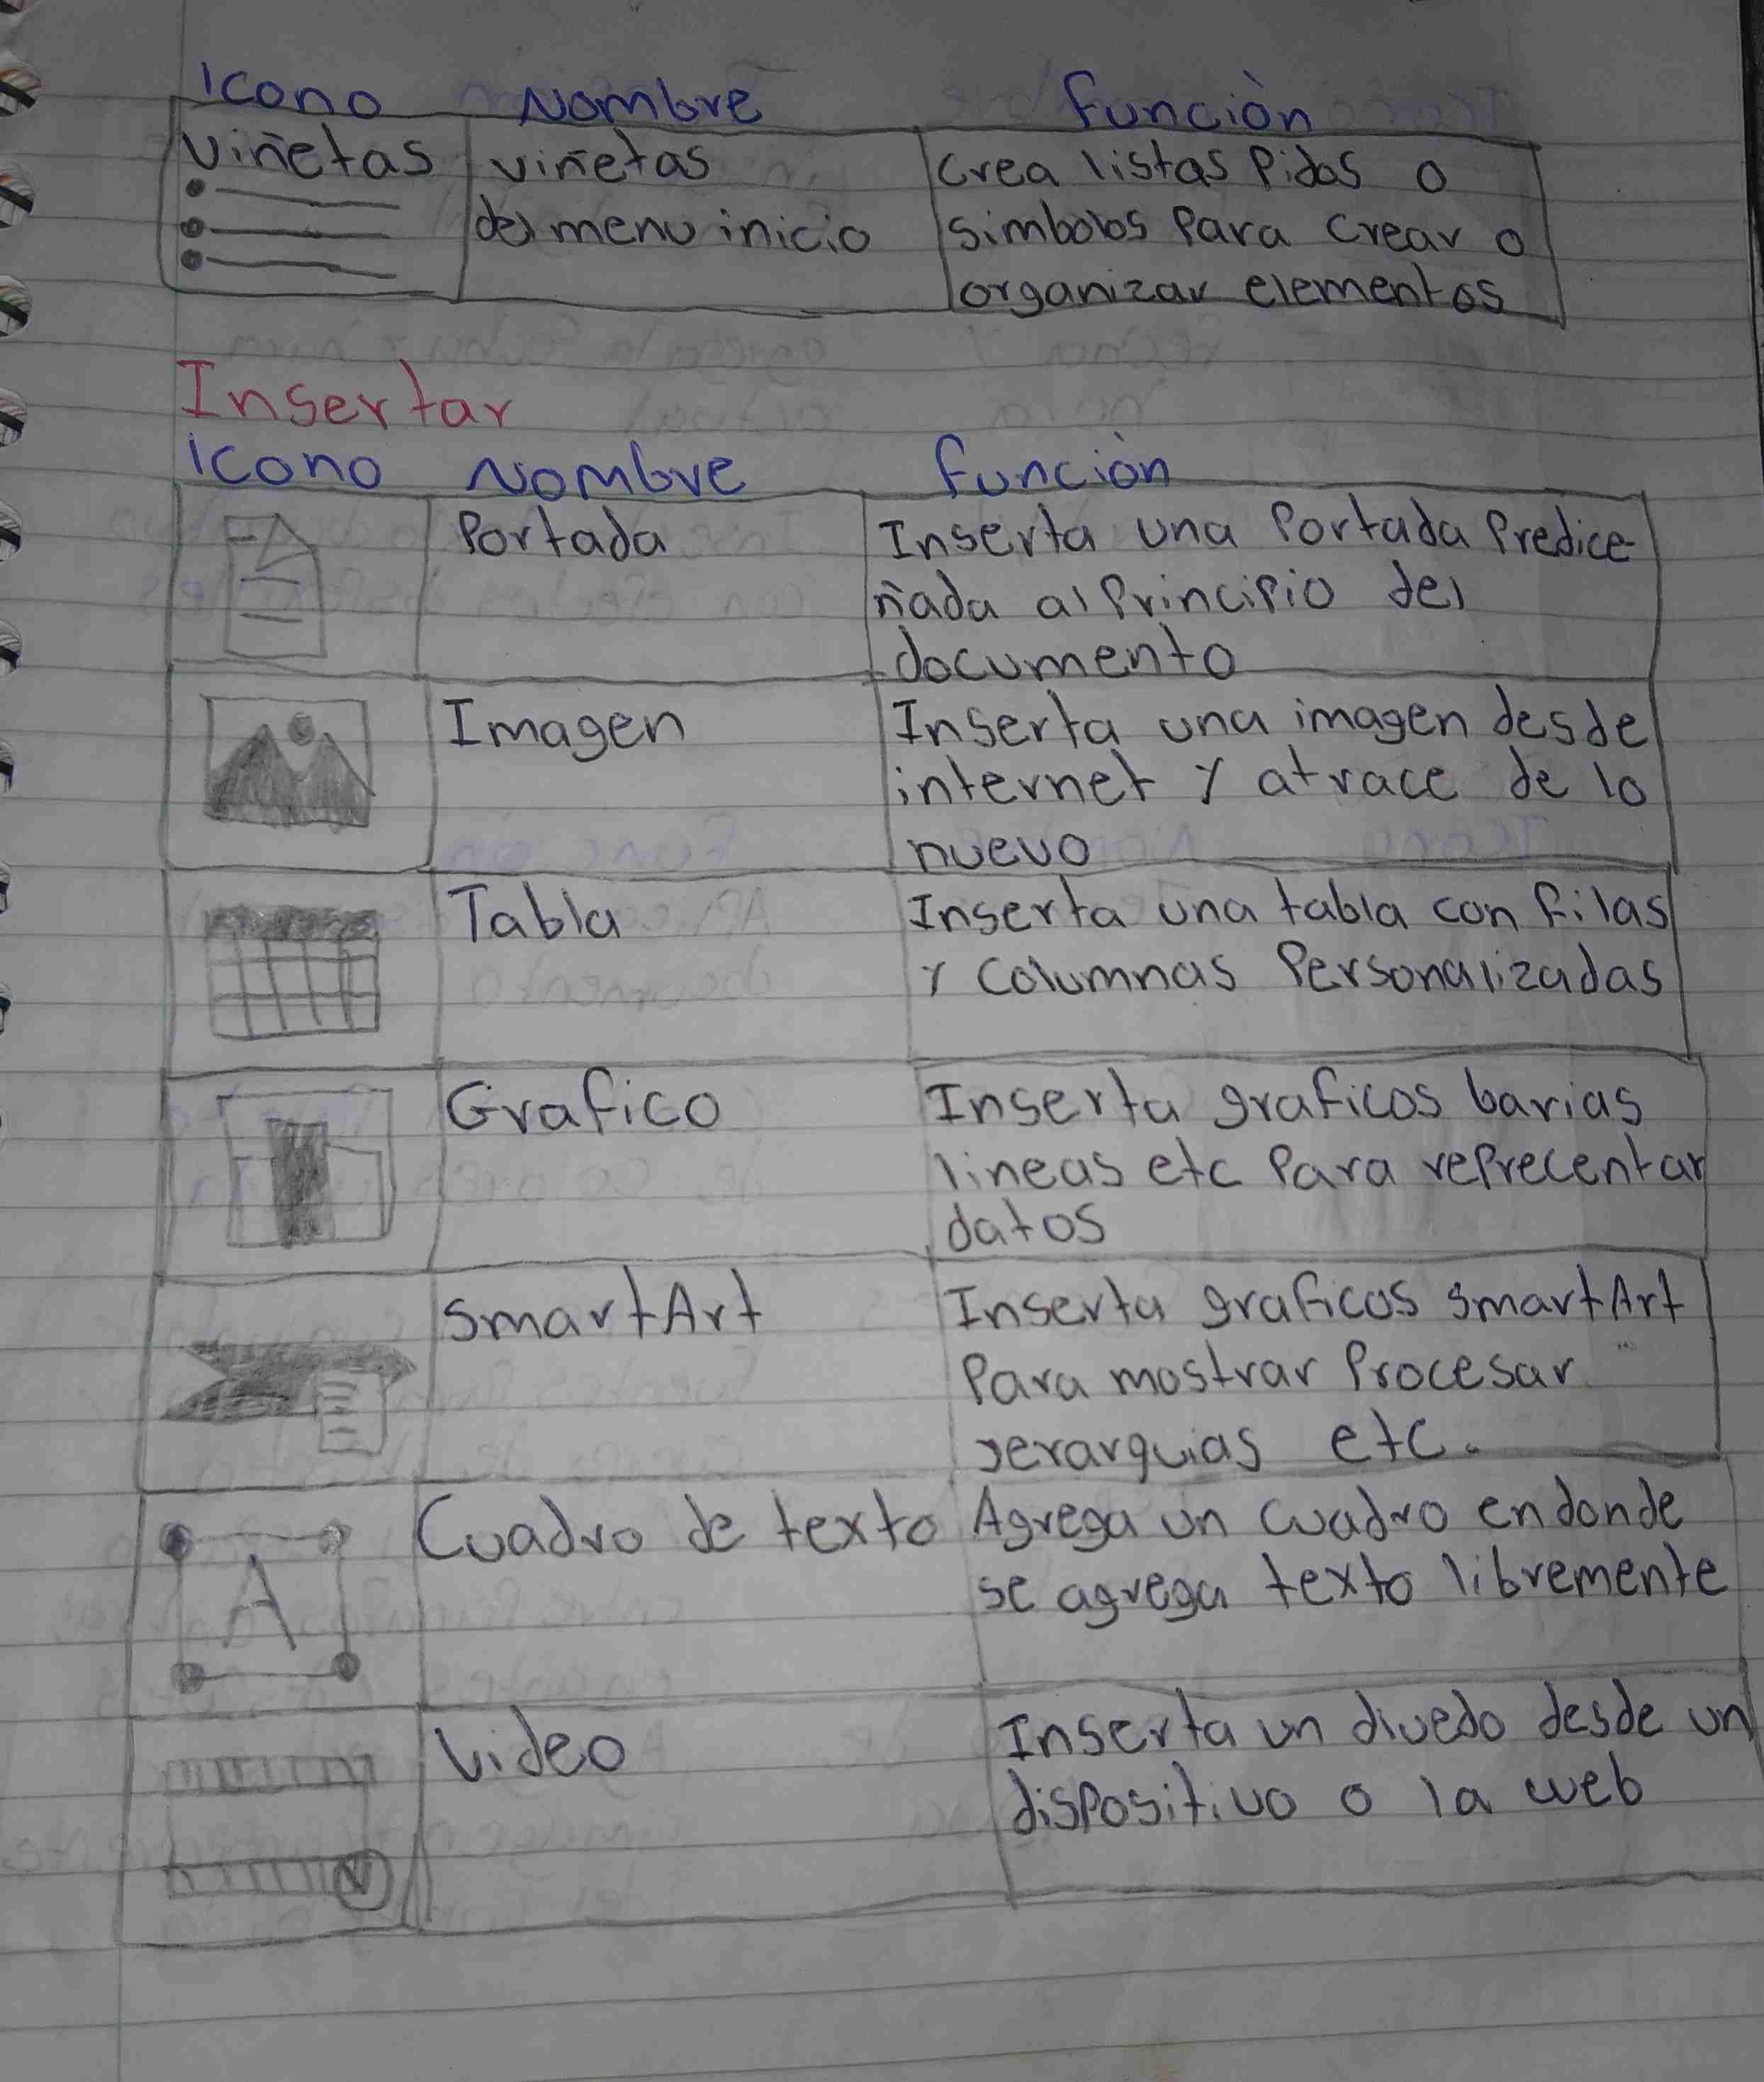 Icono Nombre Función
Viñetas viñetas Crea listas Pidas o
del menu inicio simbolos Para Crear o
organizar elementos
Insertar
Icono Nombre Función
Portada Inserta una Portada Predice-
ñada al Principio del
documento
Imagen Inserta una imagen desde
internet y atrace de lo
nuevo
Tabla Inserta una tabla con filas
y Columnas Personalizadas
Grafico Inserta graficos barias
lineas etc Para reprecentar
datos
SmartArt Inserta graficos SmartArt
Para mostrar Procesar
jerarquias etc.
A Cuadro de texto Agrega un Cuadro endonde
se agrega texto libremente
Video Inserta un divedo desde un
dispositivo o la web